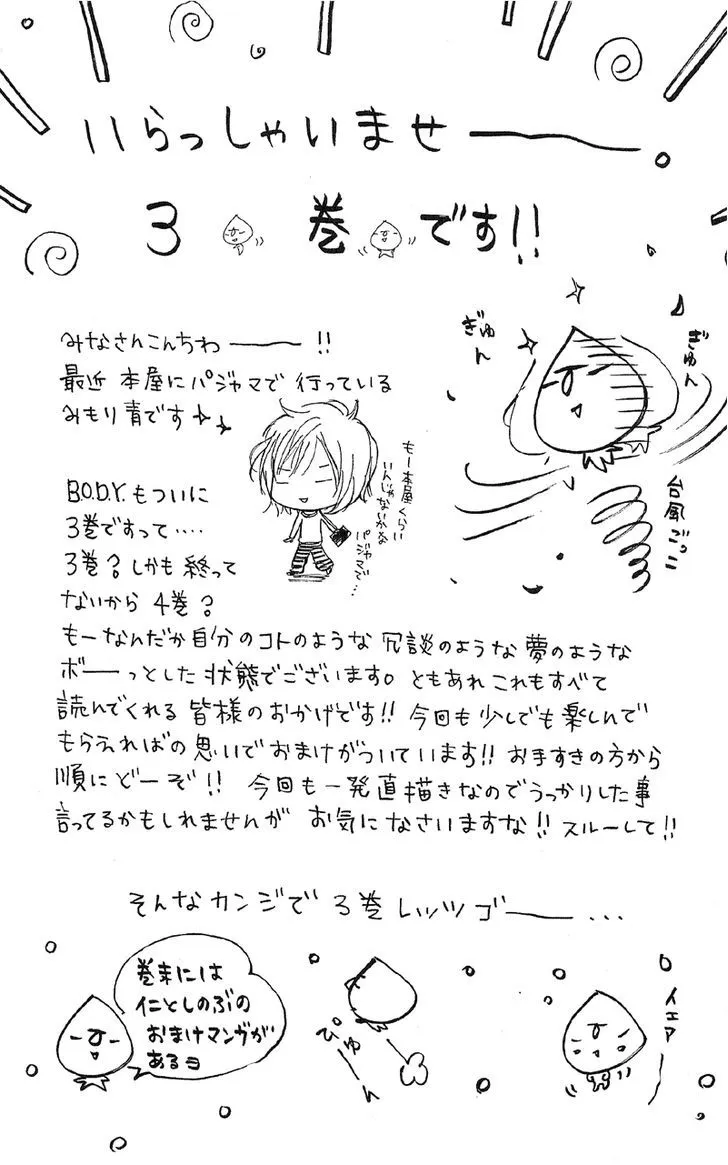 いらっしゃいませー。
3巻です!!
みなさんこんちわー!!
最近本屋にパジャマで行っている
みもり青です
もー本屋くらい
いんじゃないかな
パジャマで…
ぎゅん
ぎゅん
台風ごっこ
B.O.D.Y.もついに
3巻ですって‥‥
3巻?しかも終って
ないから4巻?
もーなんだか自分のコトのような冗談のような夢のような
ボーっとした状態でございます。ともあれこれもすべて
読んでくれる皆様のおかげです!!今回も少しでも楽しんで
もらえればの思いでおまけがついています!!お手すきの方から
順にどーぞ!!今回も一発直描きなのでうっかりした事
言ってるかもしれませんがお気になさいますな!!スルーして!!
そんなカンジで3巻レッツゴー…
巻末には
仁としのぶの
おまけマンガが
あるヨ
ぴゅーん
イェアー